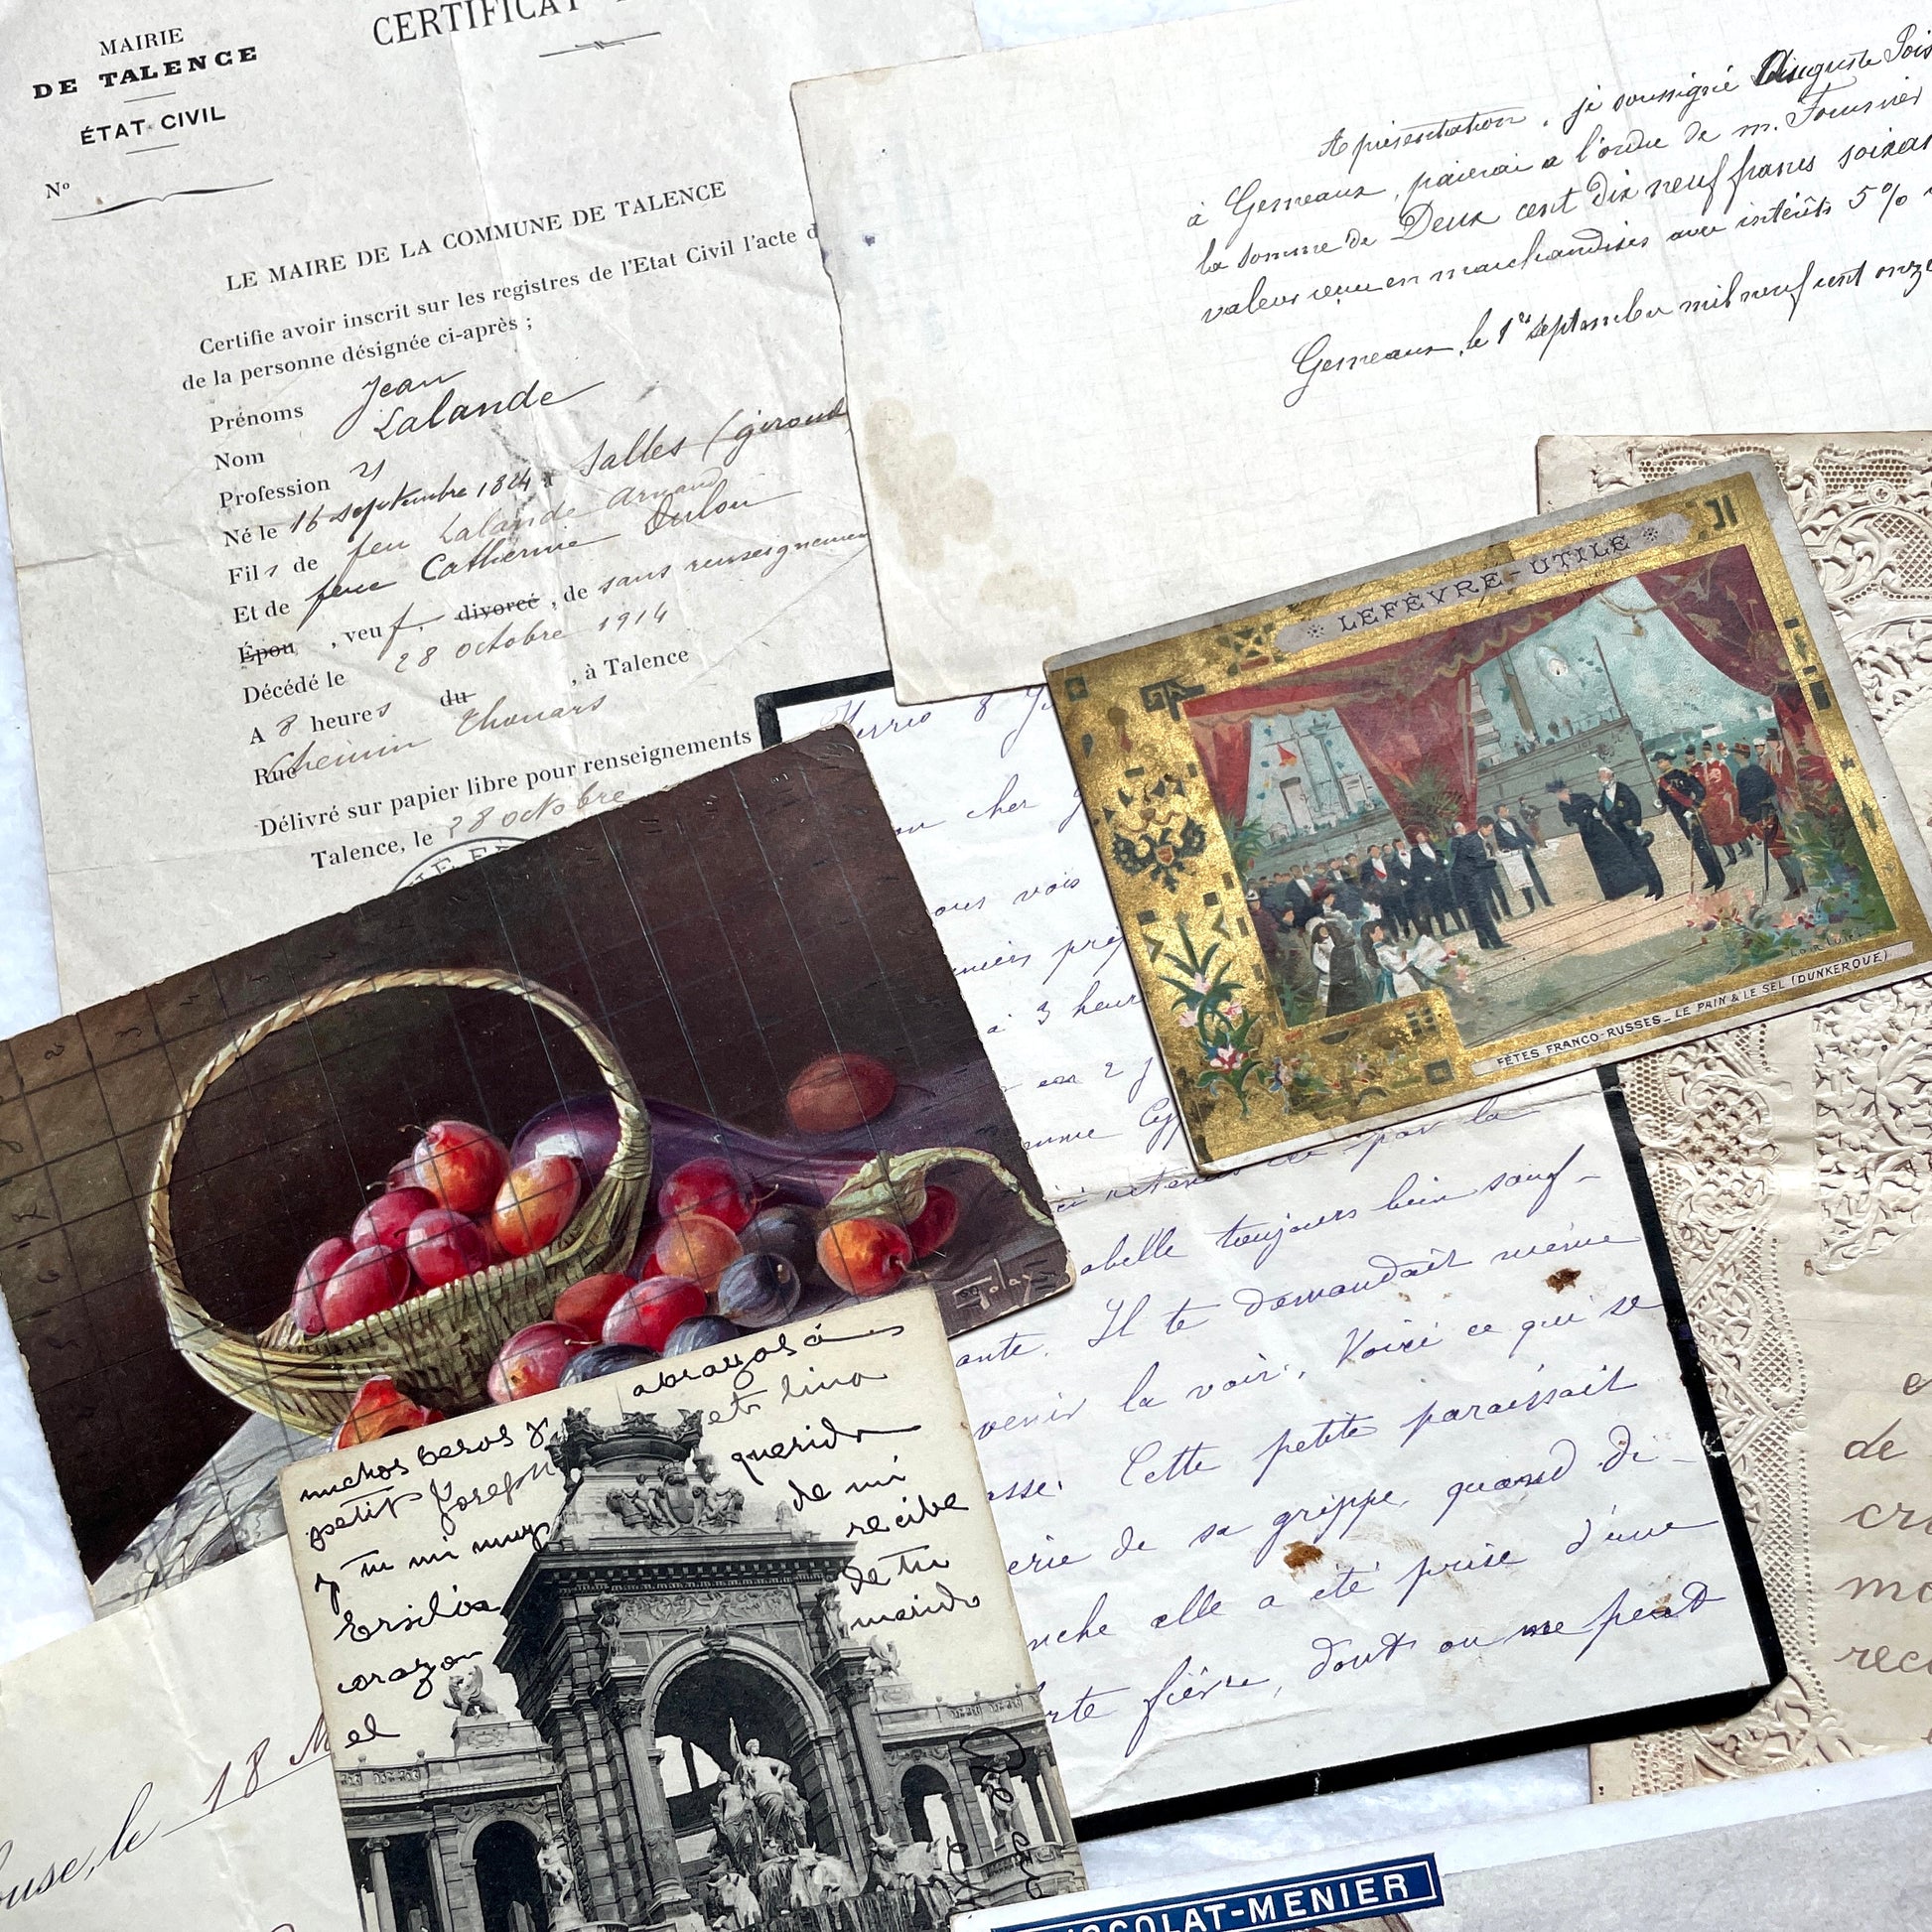 MAIRIE
DE TALENCE
ÉTAT CIVIL
Nº
CERTIFICAT
LE MAIRE DE LA COMMUNE DE TALENCE
Certifie avoir inscrit sur les registres de l'Etat Civil l'acte d
de la personne désignée ci-après ;
Prénoms Jean
Nom Lalande
Profession
Né le 16 septembre 1824 à Salles (gironde
Fils de feu Lalande Arnaud
Et de feue Catherine Dulou
Épou , veuf, divorcé, de sans renseignemen
Décédé le 28 octobre 1914
A 8 heures du , à Talence
Rue Chemin Thouars
Délivré sur papier libre pour renseignements
Talence, le 28 octobre
A présentation, je soussigné Auguste Pois
à Gemeaux, paierai a l'ordre de m. Fournier
la somme de Deux cent dix neuf francs soixan
valeur reçue en marchandises avec intérêts 5%
Gemeaux, le 1er septembre mil neuf cent onze
LEFÈVRE-UTILE
FÊTES FRANCO-RUSSES_LE PAIN & LE SEL (DUNKERQUE)
cher
vois
à 3 heur
par la
abelle toujours bien souf-
ante. Il te demandait même
venir la voir. Voici ce qui se
asse. Cette petite paraissait
erie de sa grippe, quand di-
nche elle a été prise d'une
rte fièvre, dont on ne peut
abrazos à
muchos besos y
petit Joseph et lina
y tu mi muy querida
Ersilia de mi
corazon recibe
el de tu
marido
ouse, le 18 M
de
rec
CHOCOLAT-MENIER